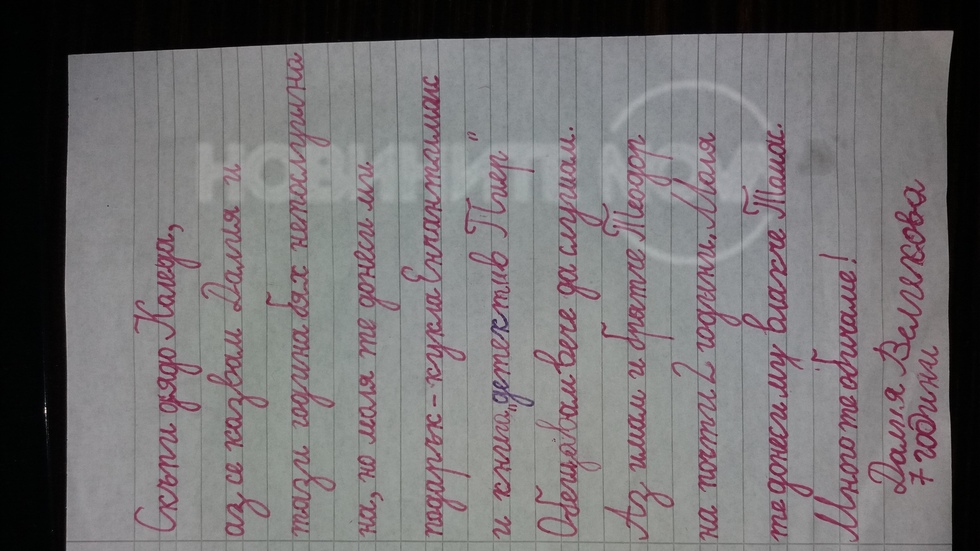 Скъпи дядо Коледа,
аз се казвам Далия и
тази година бях непослушна
на, но моля те донеси ми
подарък - кукла Енчантималс
и книга „детектив Пиер"
Обещавам вече да слушам.
Аз имам и братче Теодор
на почти 2 години. Моля
те донеси му влакче Томас.
Много те обичаме!
Далия Величкова
7 години
НОВИНИТЕ
NOVA